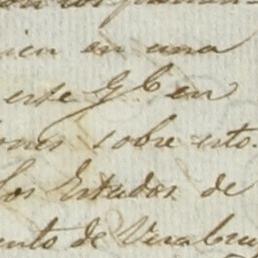 en una
este G.C en
ones sobre esto.
los Estados de
ento de Veracruz